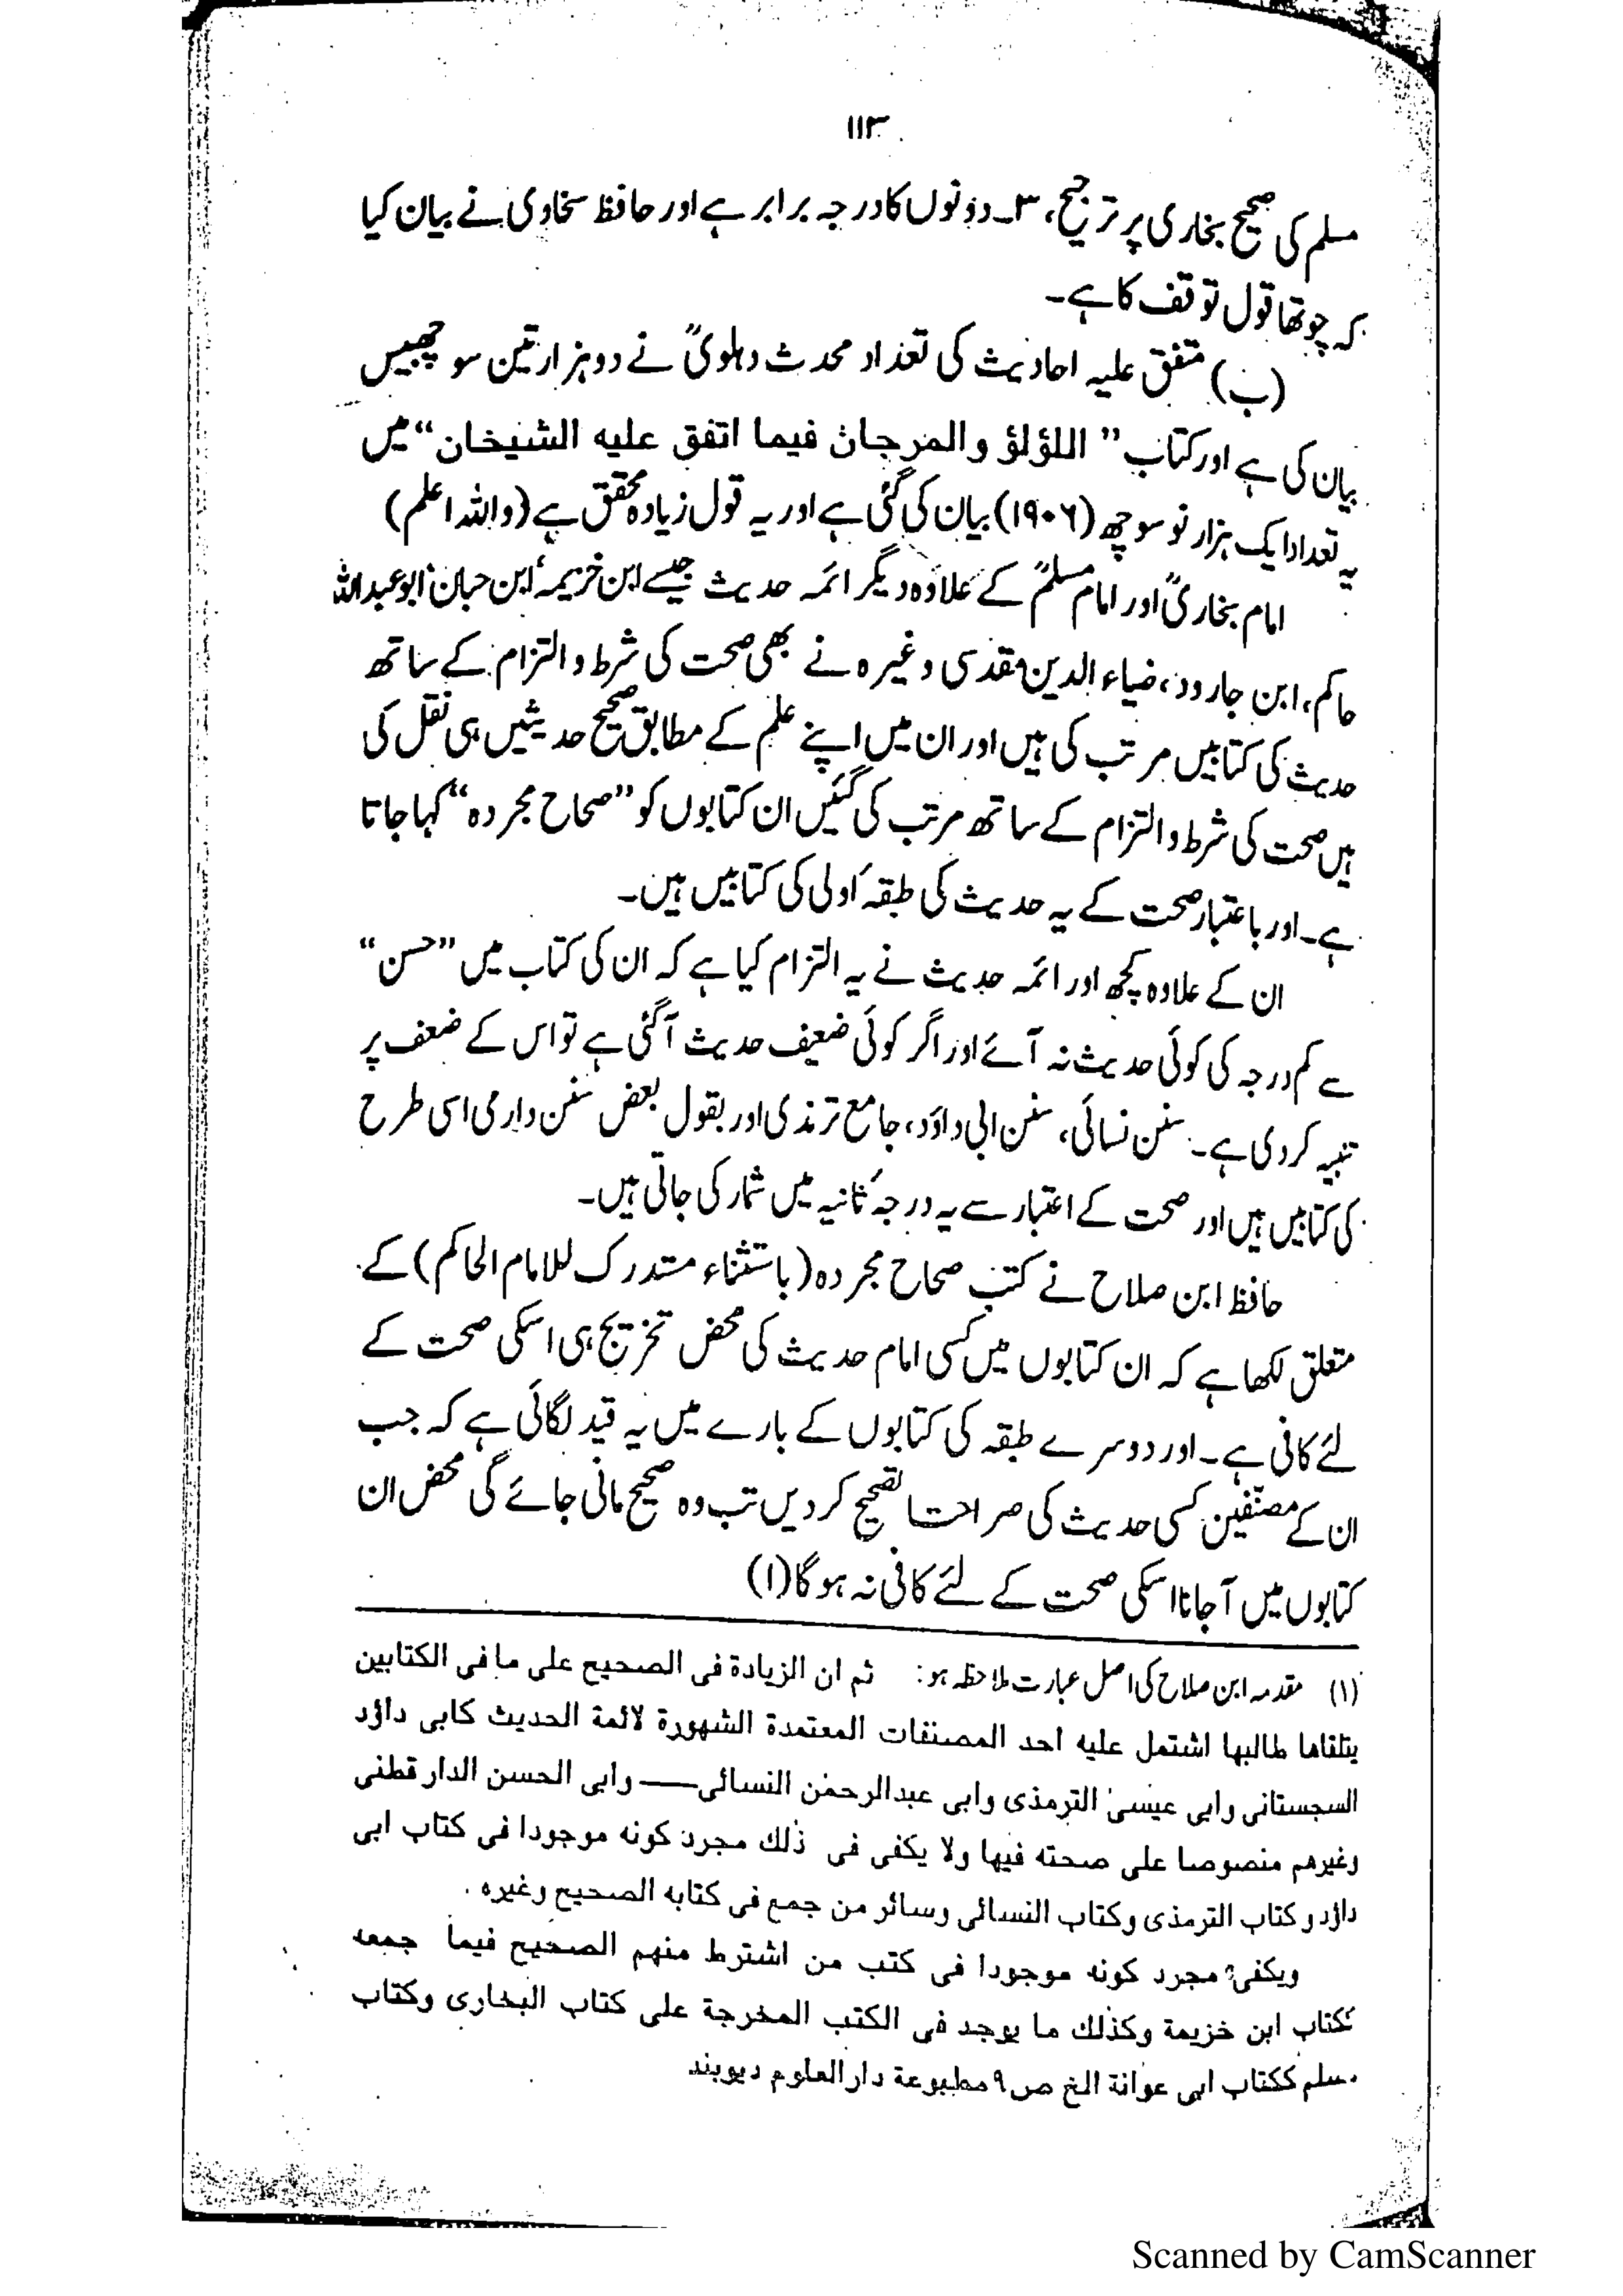 ۱۱۳
مسلم کی صحیح بخاری پر ترجیح، ۳۔ دونوں کا درجہ برابر ہے اور حافظ سخاوی نے بیان کیا
کہ چوتھا قول توقف کا ہے۔
(ب) متفق علیہ احادیث کی تعداد محدث دہلویؒ نے دو ہزار تین سو چھبیس
بیان کی ہے اور کتاب ”اللؤلؤ والمرجان فیما اتفق علیه الشیخان“ میں
یہ تعداد ایک ہزار نو سو چھ (۱۹۰۶) بیان کی گئی ہے اور یہ قول زیادہ محقق ہے (واللہ اعلم)
امام بخاریؒ اور امام مسلمؒ کے علاوہ دیگر ائمہ حدیث جیسے ابن خزیمہ، ابن حبان، ابو عبداللہ
حاکم، ابن جارود، ضیاء الدین مقدسی وغیرہ نے بھی صحت کی شرط و التزام کے ساتھ
حدیث کی کتابیں مرتب کی ہیں اور ان میں اپنے علم کے مطابق صحیح حدیثیں ہی نقل کی
ہیں صحت کی شرط و التزام کے ساتھ مرتب کی گئیں ان کتابوں کو ”صحاح مجردہ“ کہا جاتا
ہے۔ اور باعتبار صحت کے یہ حدیث کی طبقۂ اولی کی کتابیں ہیں۔
ان کے علاوہ کچھ اور ائمہ حدیث نے یہ التزام کیا ہے کہ ان کی کتاب میں ”حسن“
سے کم درجہ کی کوئی حدیث نہ آئے اور اگر کوئی ضعیف حدیث آگئی ہے تو اس کے ضعف پر
تنبیہ کردی ہے۔ سنن نسائی، سنن ابی داؤد، جامع ترمذی اور بقول بعض سنن دارمی اسی طرح
کی کتابیں ہیں اور صحت کے اعتبار سے یہ درجۂ ثانیہ میں شمار کی جاتی ہیں۔
حافظ ابن صلاح نے کتب صحاح مجردہ (باستثناء مستدرک للامام الحاکم) کے
متعلق لکھا ہے کہ ان کتابوں میں کسی امام حدیث کی محض تخریج ہی اسکی صحت کے
لئے کافی ہے۔ اور دوسرے طبقہ کی کتابوں کے بارے میں یہ قید لگائی ہے کہ جب
ان کے مصنفین کسی حدیث کی صراحتا تصحیح کردیں تب وہ صحیح مانی جائے گی محض ان
کتابوں میں آجانا اسکی صحت کے لئے کافی نہ ہوگا (۱)
(۱) مقدمہ ابن صلاح کی اصل عبارت ملاحظہ ہو: ثم ان الزیادة فی الصحیح علی ما فی الکتابین
یتلقاها طالبها اشتمل علیه احد المصنفات المعتمدة الشهورة لائمة الحدیث کابی داؤد
السجستانی وابی عیسیٰ الترمذی وابی عبدالرحمٰن النسائی —— وابی الحسن الدار قطنی
وغیرهم منصوصا علی صحته فیها ولا یکفی فی ذلك مجرد کونه موجودا فی کتاب ابی
داؤد و کتاب الترمذی وکتاب النسائی وسائر من جمع فی کتابه الصحیح وغیره .
ویکفی مجرد کونه موجودا فی کتب من اشترط منهم الصحیح فیما جمعه
ککتاب ابن خزیمة وکذلك ما یوجد فی الکتب المخرجة علی کتاب البخاری وکتاب
مسلم ککتاب ابی عوانة الخ ص ۹ مطبوعة دار العلوم دیوبند
Scanned by CamScanner